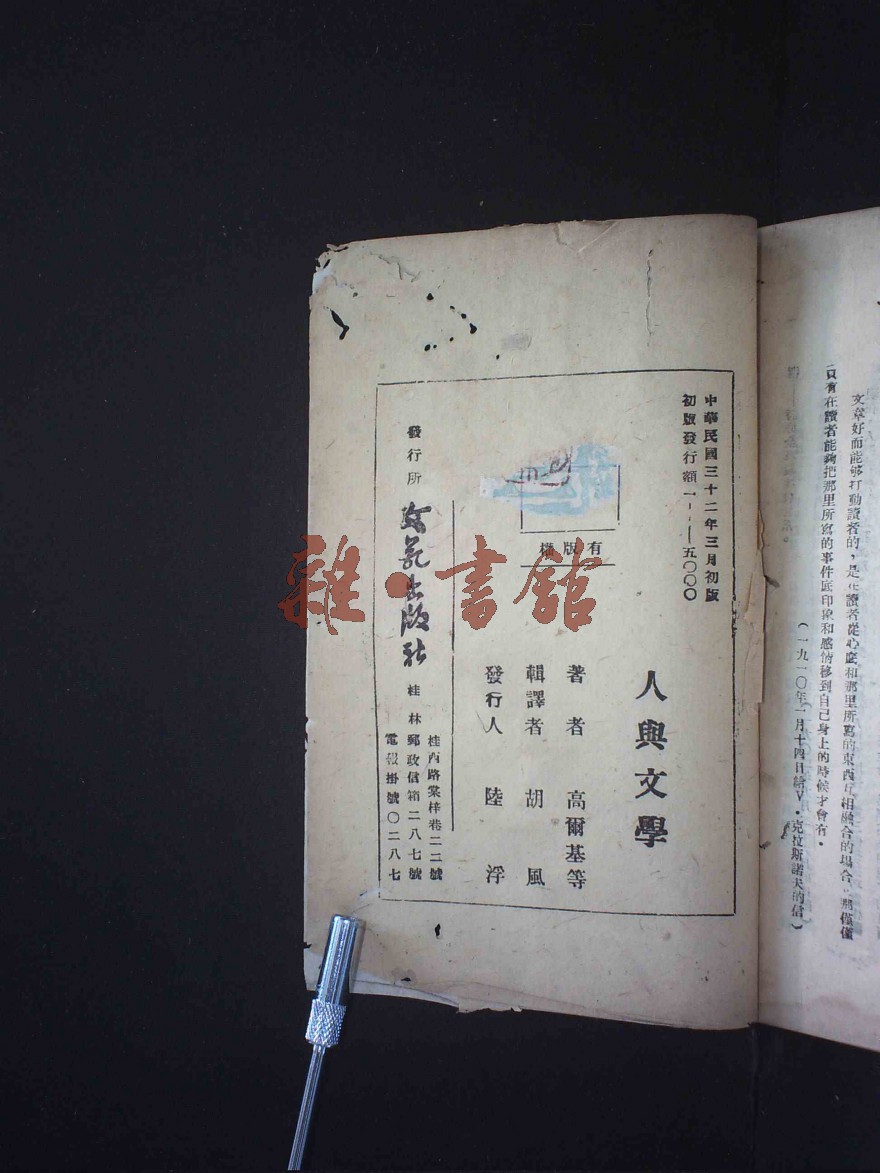 文章好而能够打動讀者的，是在讀者從心底和那里所寫的東西互相融合的場合
只有在讀者能夠把那里所寫的事件底印象和感情移到自己身上的時候才會有。
（一九一〇年一月十四日給V·克拉斯諾夫的信）
中華民國三十二年三月初版
初版發行額一——五〇〇〇
人與文學
著者　高爾基等
輯譯者　胡風
發行人　陸浮
有版權
發行所　出版社
桂林
桂西路棠梓巷二二號
郵政信箱二八七號
電報掛號〇二八七
雜·書館